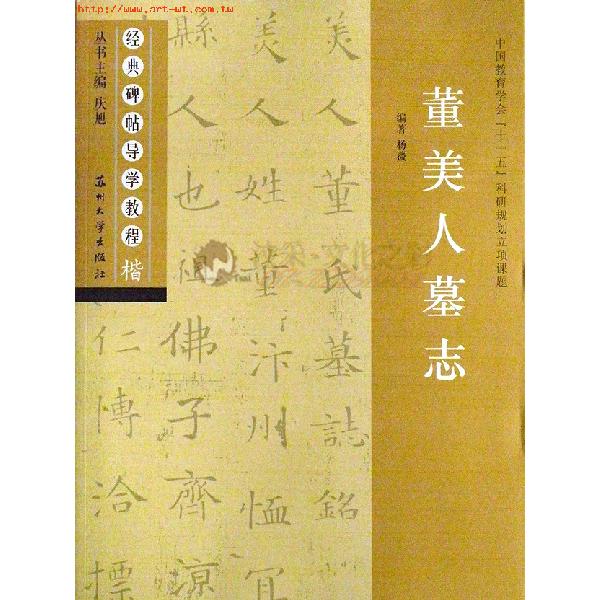 http://www.art-wt.com.tw
中国教育学会「十一五」科研规划立项课题
董美人墓志
编著 杨
经典碑帖导学教程 楷
丛书主编 庆旭
苏州大学出版社
美人董氏墓誌銘
美人姓董汴州恤宜
縣人也祖佛子齊涼
仁博洽摽